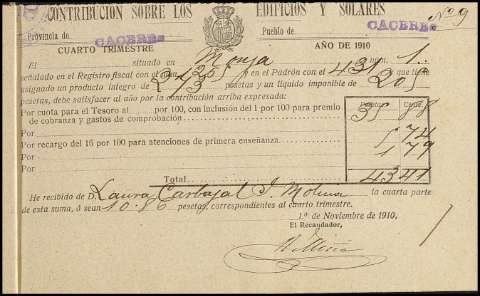 CONTRIBUCIÓN SOBRE LOS EDIFICIOS Y SOLARES
Nº 9
Provincia de CACERES Pueblo de CACERES
CUARTO TRIMESTRE AÑO DE 1910
El situado en Monja núm. 1
señalado en el Registro fiscal con el núm. y en el Padrón con el 431 que tiene
asignado un producto íntegro de 273 pesetas y un líquido imponible de 205
pesetas, debe satisfacer al año por la contribución arriba expresada:
Pesetas Cénts.
Por cuota para el Tesoro al por 100, con inclusión del 1 por 100 para premio
de cobranza y gastos de comprobación 35 88
Por
Por recargo del 16 por 100 para atenciones de primera enseñanza. 5 74
Por 1 79
Por
Total 43 41
He recibido de D. Laura Carbajal y Molina la cuarta parte
de esta suma, ó sean 10-86 pesetas, correspondientes al cuarto trimestre.
1.º de Noviembre de 1910.
El Recaudador,